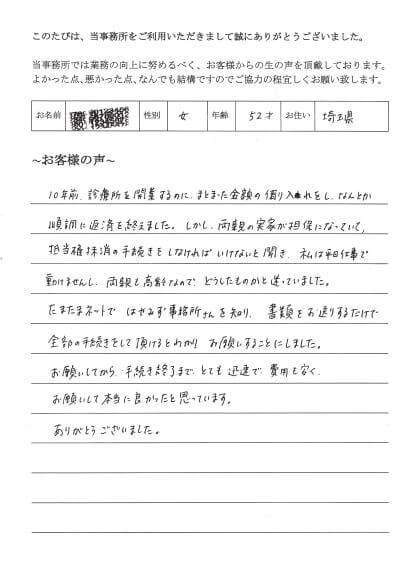 このたびは、当事務所をご利用いただきまして誠にありがとうございました。
当事務所では業務の向上に努めるべく、お客様からの生の声を頂戴しております。
よかった点、悪かった点、なんでも結構ですのでご協力の程宜しくお願い致します。
お名前 性別 女 年齢 52才 お住い 埼玉県
~お客様の声~
10年前、診療所を開業するのに、まとまった金額の借り入れをし、なんとか
順調に返済を終えました。しかし、両親の実家が担保になっていて、
抵当権抹消の手続きをしなければいけないと聞き、私は平日仕事で
動けませんし、両親も高齢なので、どうしたものかと迷っていました。
たまたまネットで はやみず事務所さんを知り、書類をお送りするだけで
全部の手続きをして頂けるとわかり お願いすることにしました。
お願いしてから 手続き終了まで、とても迅速で、費用も安く、
お願いして本当に良かったと思っています。
ありがとうございました。